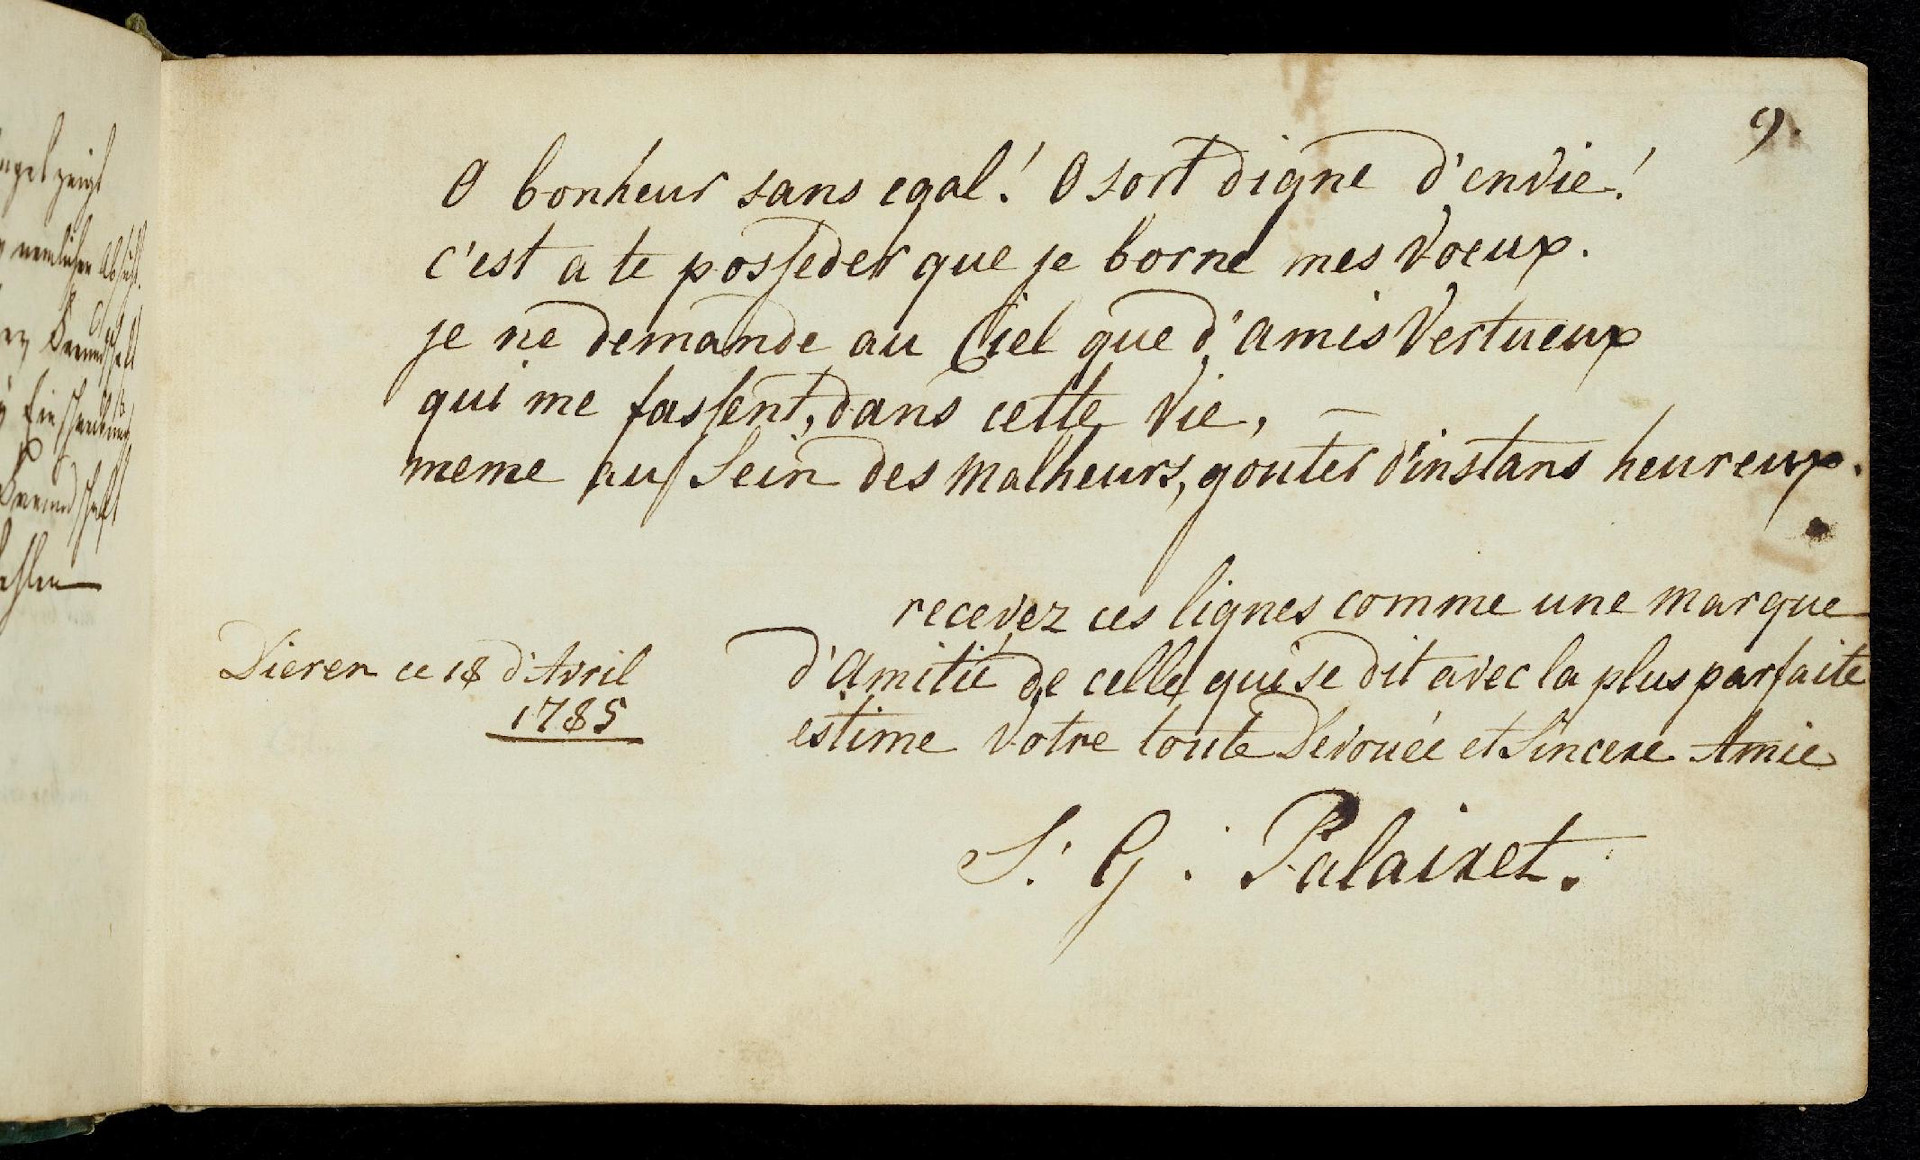 9.
O bonheur sans egal! O sort digne d'envie!
c'est a te posseder que je borne mes Voeux.
je ne demande au Ciel que d'amis Vertueux
qui me fassent, dans cette Vie,
meme au Sein des malheurs, gouter d'instans heureux.
recevez ces lignes comme une marque
d'Amitié de celle, qui se dit avec la plus parfaite
estime Votre toute Devouée et Sincere Amie
Dieren ce 18 d'Avril
1785
S. G. Palairet.